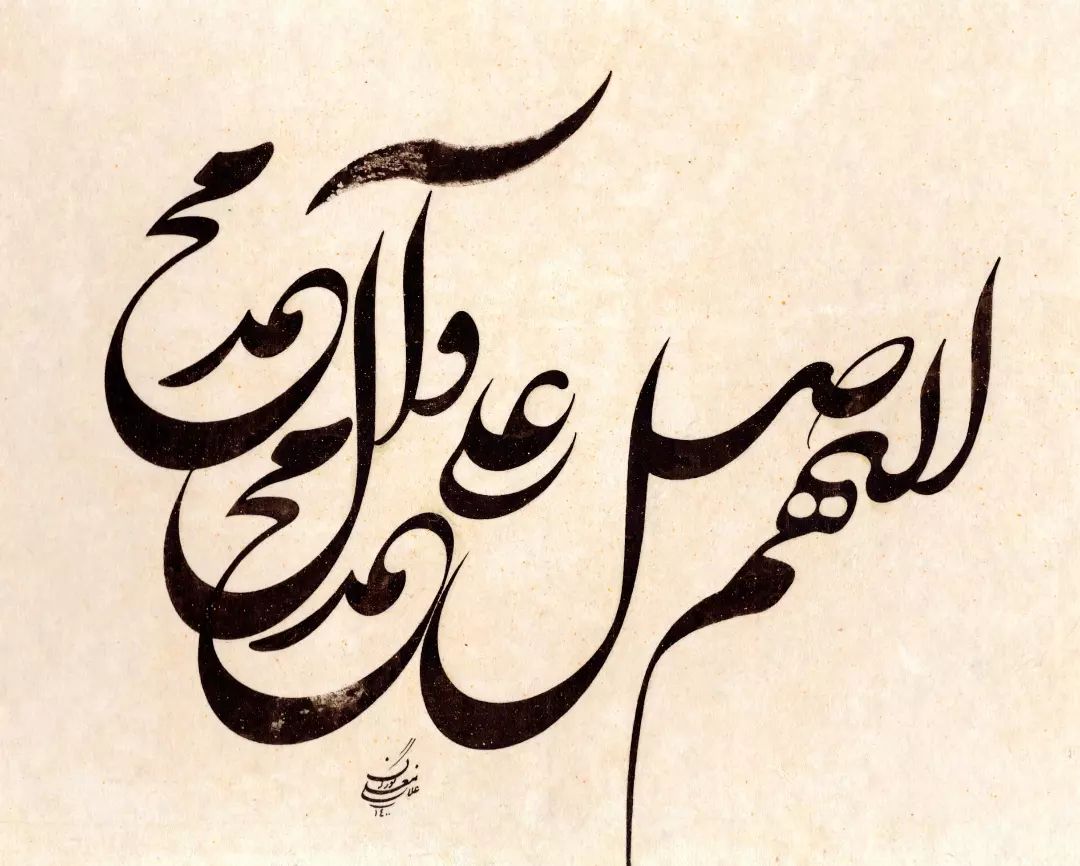 اللهم صل علی محمد وآل محمد
۱۴۰۰